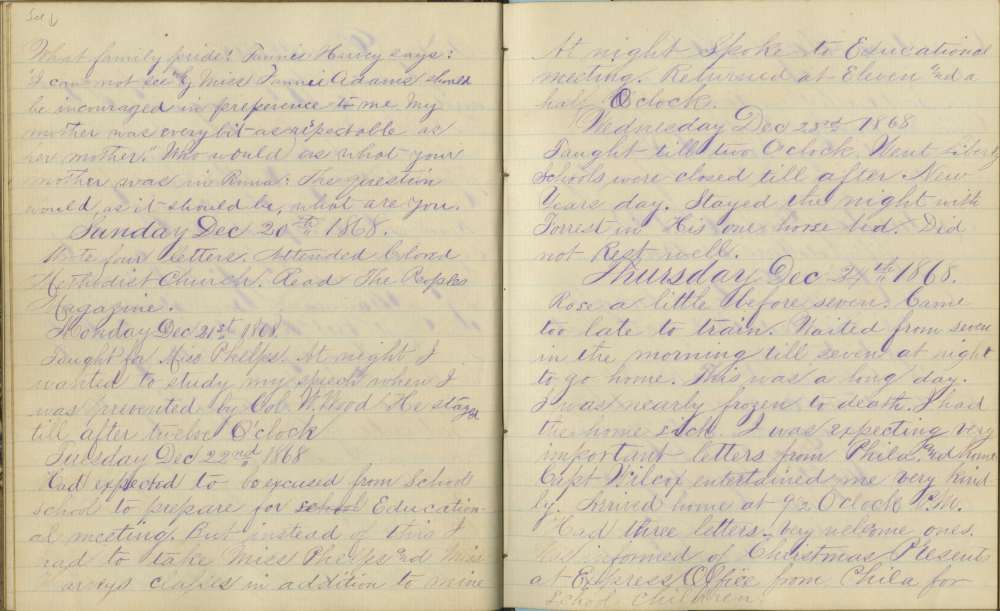 What family pride! Fannie Harvey says:
"I can not see why Miss Fannie Adams should
be incouraged in preference to me My
mother was every bit as respectable as
her mother." Who would as what your
mother was in Roma: The question
would, as it should be, what are you.
Sunday Dec 20th 1868.
Wrote four letters. Attended Colored
Methodist Church. Read The Peoples
Magazine.
Monday Dec 21st 1868
Taught for Miss Phelps. At night I
wanted to study my speech when I
was prevented by Col. W. Wood. He stayed
till after twelve O'clock
Tuesday Dec 22nd 1868
Had expected to be excused from School
school to prepare for school Education-
al meeting. But instead of this I
had to take Miss Phelps and Miss
Harveys classes in addition to mine
At night Spoke to Educational
meeting. Returned at Eleven and a
half O'clock.
Wednesday Dec 23rd 1868
Taught till two O'clock. Went
Schools were closed till after New
Years day. Stayed the night with
Forrest in His one horse bed. Did
not Rest well.
Thursday Dec 24th 1868.
Rose a little before seven. Came
too late to train. Waited from seven
in the morning till seven at night
to go home. This was a long day.
I was nearly frozen to death. I had
the home sick. I was expecting very
important letters from Phila. and home
Capt Wilcox entertained me very kind
ly. Arrived home at 9½ O'clock P.M.
Had three letters, very welcome ones.
Was informed of Christmas Presents
at Express Office from Phila for
School children.